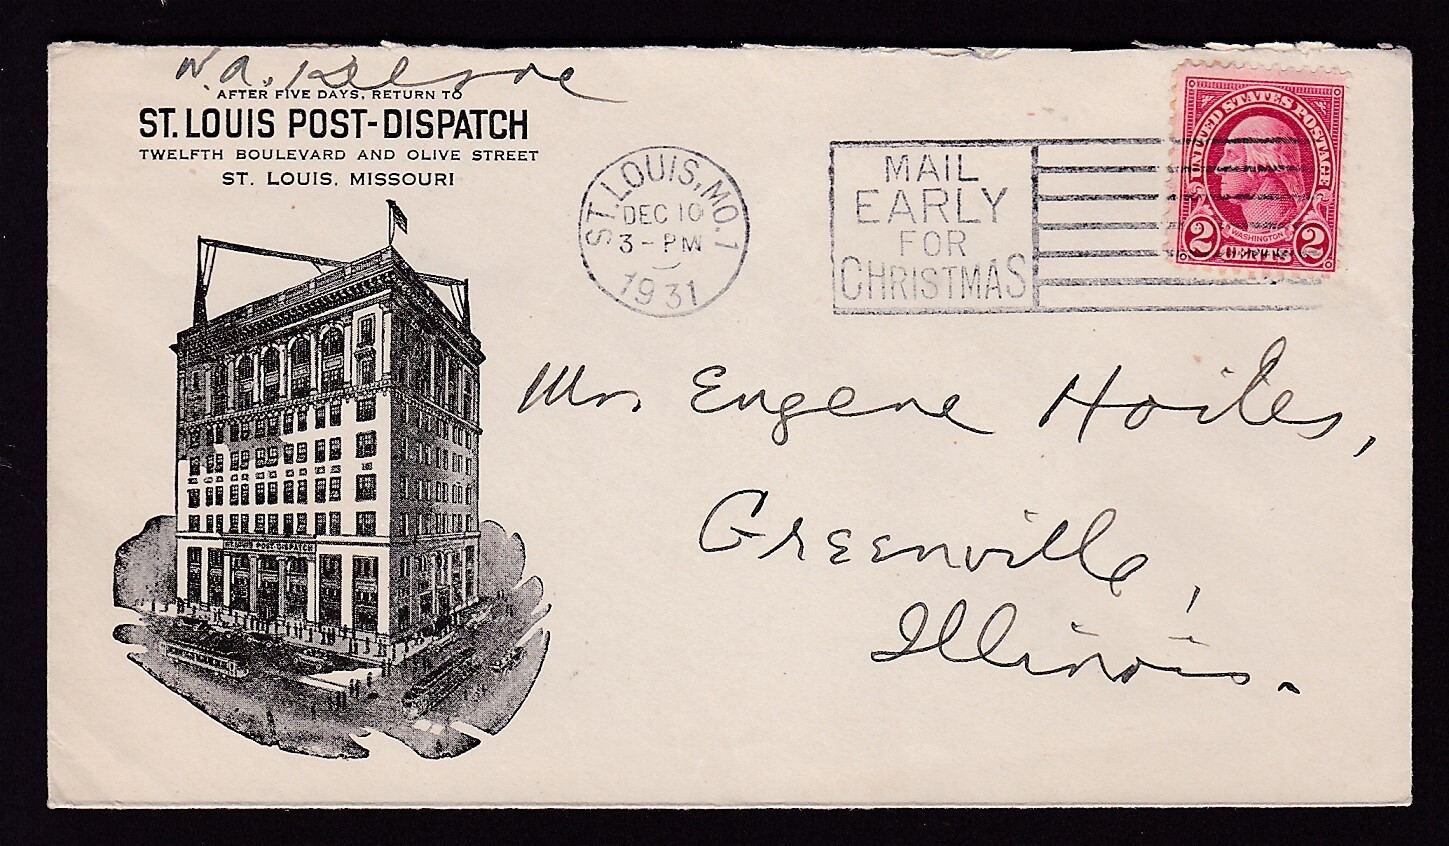 W.A.
AFTER FIVE DAYS, RETURN TO
ST. LOUIS POST-DISPATCH
TWELFTH BOULEVARD AND OLIVE STREET
ST. LOUIS, MISSOURI
ST. LOUIS, MO. 1
DEC 10
3-PM
1931
MAIL
EARLY
FOR
CHRISTMAS
UNITED STATES POSTAGE
WASHINGTON
2 2
ST. LOUIS POST-DISPATCH
Mr. Eugene Hoiles,
Greenville,
Illinois.